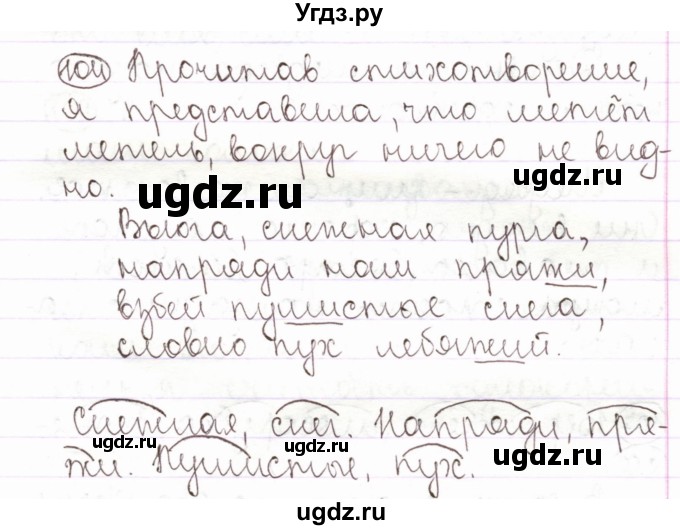 Угдз.ру
104 Прочитав стихотворение,
я представила, что метёт
метель, вокруг ничего не вид-
но.
ugdz.ru ugdz.ru
Вьюга, снежная пурга,
напряди нам пряжи,
взбей пушистые снега,
словно пух лебяжий.
Снежная, снег. Напряди, пря-
жи. Пушистые, пух.
ugdz.ru ugdz.ru ugdz.ru
ugdz.ru